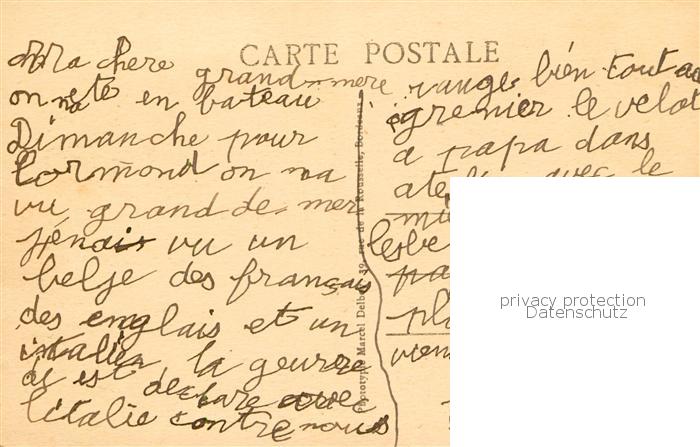 CARTE POSTALE
Ma chere grand-mere
on na ete en bateau
Dimanche pour
Lormond on na
vu grand de mer
vu un
belje des français
des englais et un
italien la geurre
ai est declare avec
litalie contre nous
ranges bien tout au
grenier le velot
a papa dans
avec le
Phototypie Marcel Delboy, 39, rue de la Rousselle, Bordeaux
privacy protection
Datenschutz